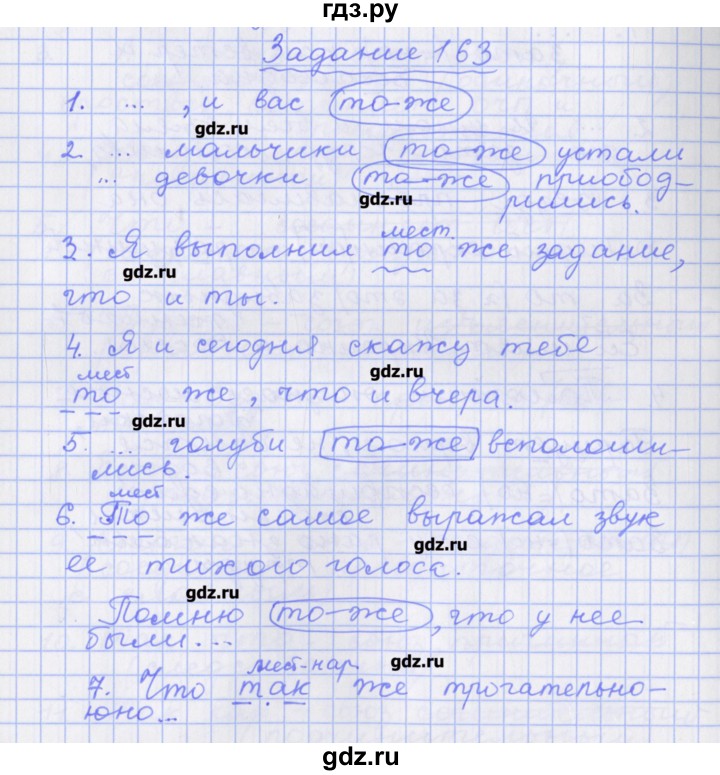 гдз.ру
Задание 163
1. ... , и вас то же
gdz.ru
2. ... мальчики то же устали
... девочки то же приобод-
gdz.ru
рились.
мест.
3. Я выполнил то же задание,
gdz.ru
что и ты.
4. Я и сегодня скажу тебе
gdz.ru
мест
то же, что и вчера.
gdz.ru
5. ... голуби то же всполоши-
лись.
мест
6. То же самое выражал звук
gdz.ru
ее тихого голоса.
gdz.ru
Помню то же, что у нее
были...
мест-нар. gdz.ru
7. Что так же трогательно-
юно...
gdz.ru